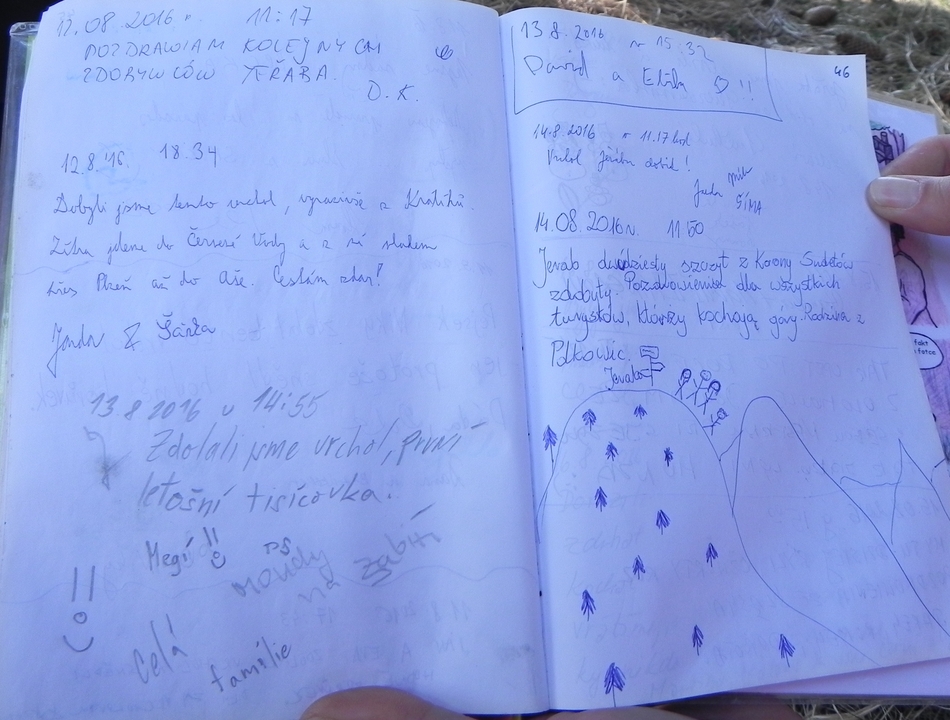 12.08.2016 r. 11:17
POZDRAWIAM KOLEJNYCH
ZDOBYWCÓW JEŘÁBA.
D.K.
12.8.'16. 18.34
Dobyli jsme tento vrchol, vyrazivše z Králíků.
Zítra jdeme do Červené Vody a z ní vlakem
přes Plzeň až do Aše. Cestám zdar!
Jenda & Šárka
13 8 2016 v 14:55
Zdolali jsme vrchol, první
letošní tisícovka.
Megi !!
PS
mouchy
na zabití
!!
Celá
famílie
13.8.2016 15:32
David a Eliška !!
46
14.8.2016 11.17
Vrchol Jeřábu dobit!
ŠÍMA
14.08.2016r. 11 50
Jerab dwudziesty szczyt z Korony Sudetów
zdobyty. Pozdrowienia dla wszystkich
turystów, którzy kochają góry. Rodzina z
Polkowic.
Jerab
fakt